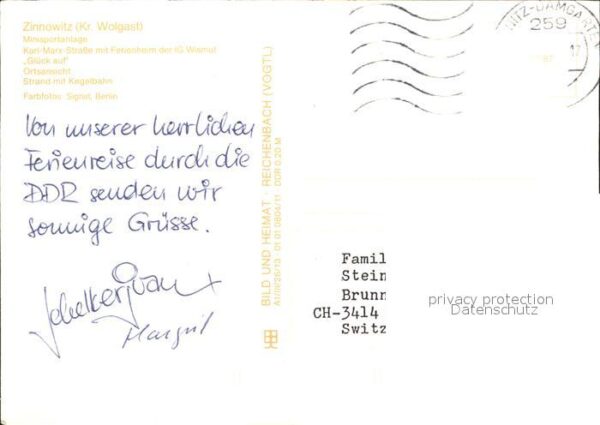 Zinnowitz (Kr. Wolgast)
Minisportanlage
Karl-Marx-Straße mit Ferienheim der IG Wismut
„Glück auf“
Ortsansicht
Strand mit Kegelbahn
Farbfotos: Signal, Berlin
Von unserer herrlichen
Ferienreise durch die
DDR senden wir
sonnige Grüsse.
Margrit
BILD UND HEIMAT · REICHENBACH (VOGTL)
A1/III/26/13 01 01 0804/11 DDR 0,20 M
NITZ-DAMGARTE
259
17
Famil
Stein
Brunn
CH-3414
Switz
privacy protection
Datenschutz